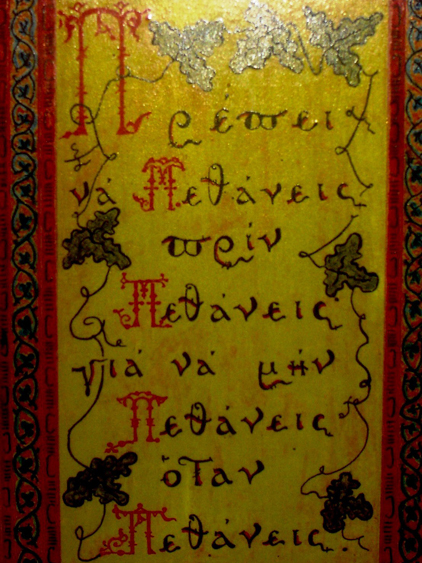 Πρέπει
νά Πεθάνεις
πρίν
Πεθάνεις
γιά νά μήν
Πεθάνεις
όταν
Πεθάνεις.